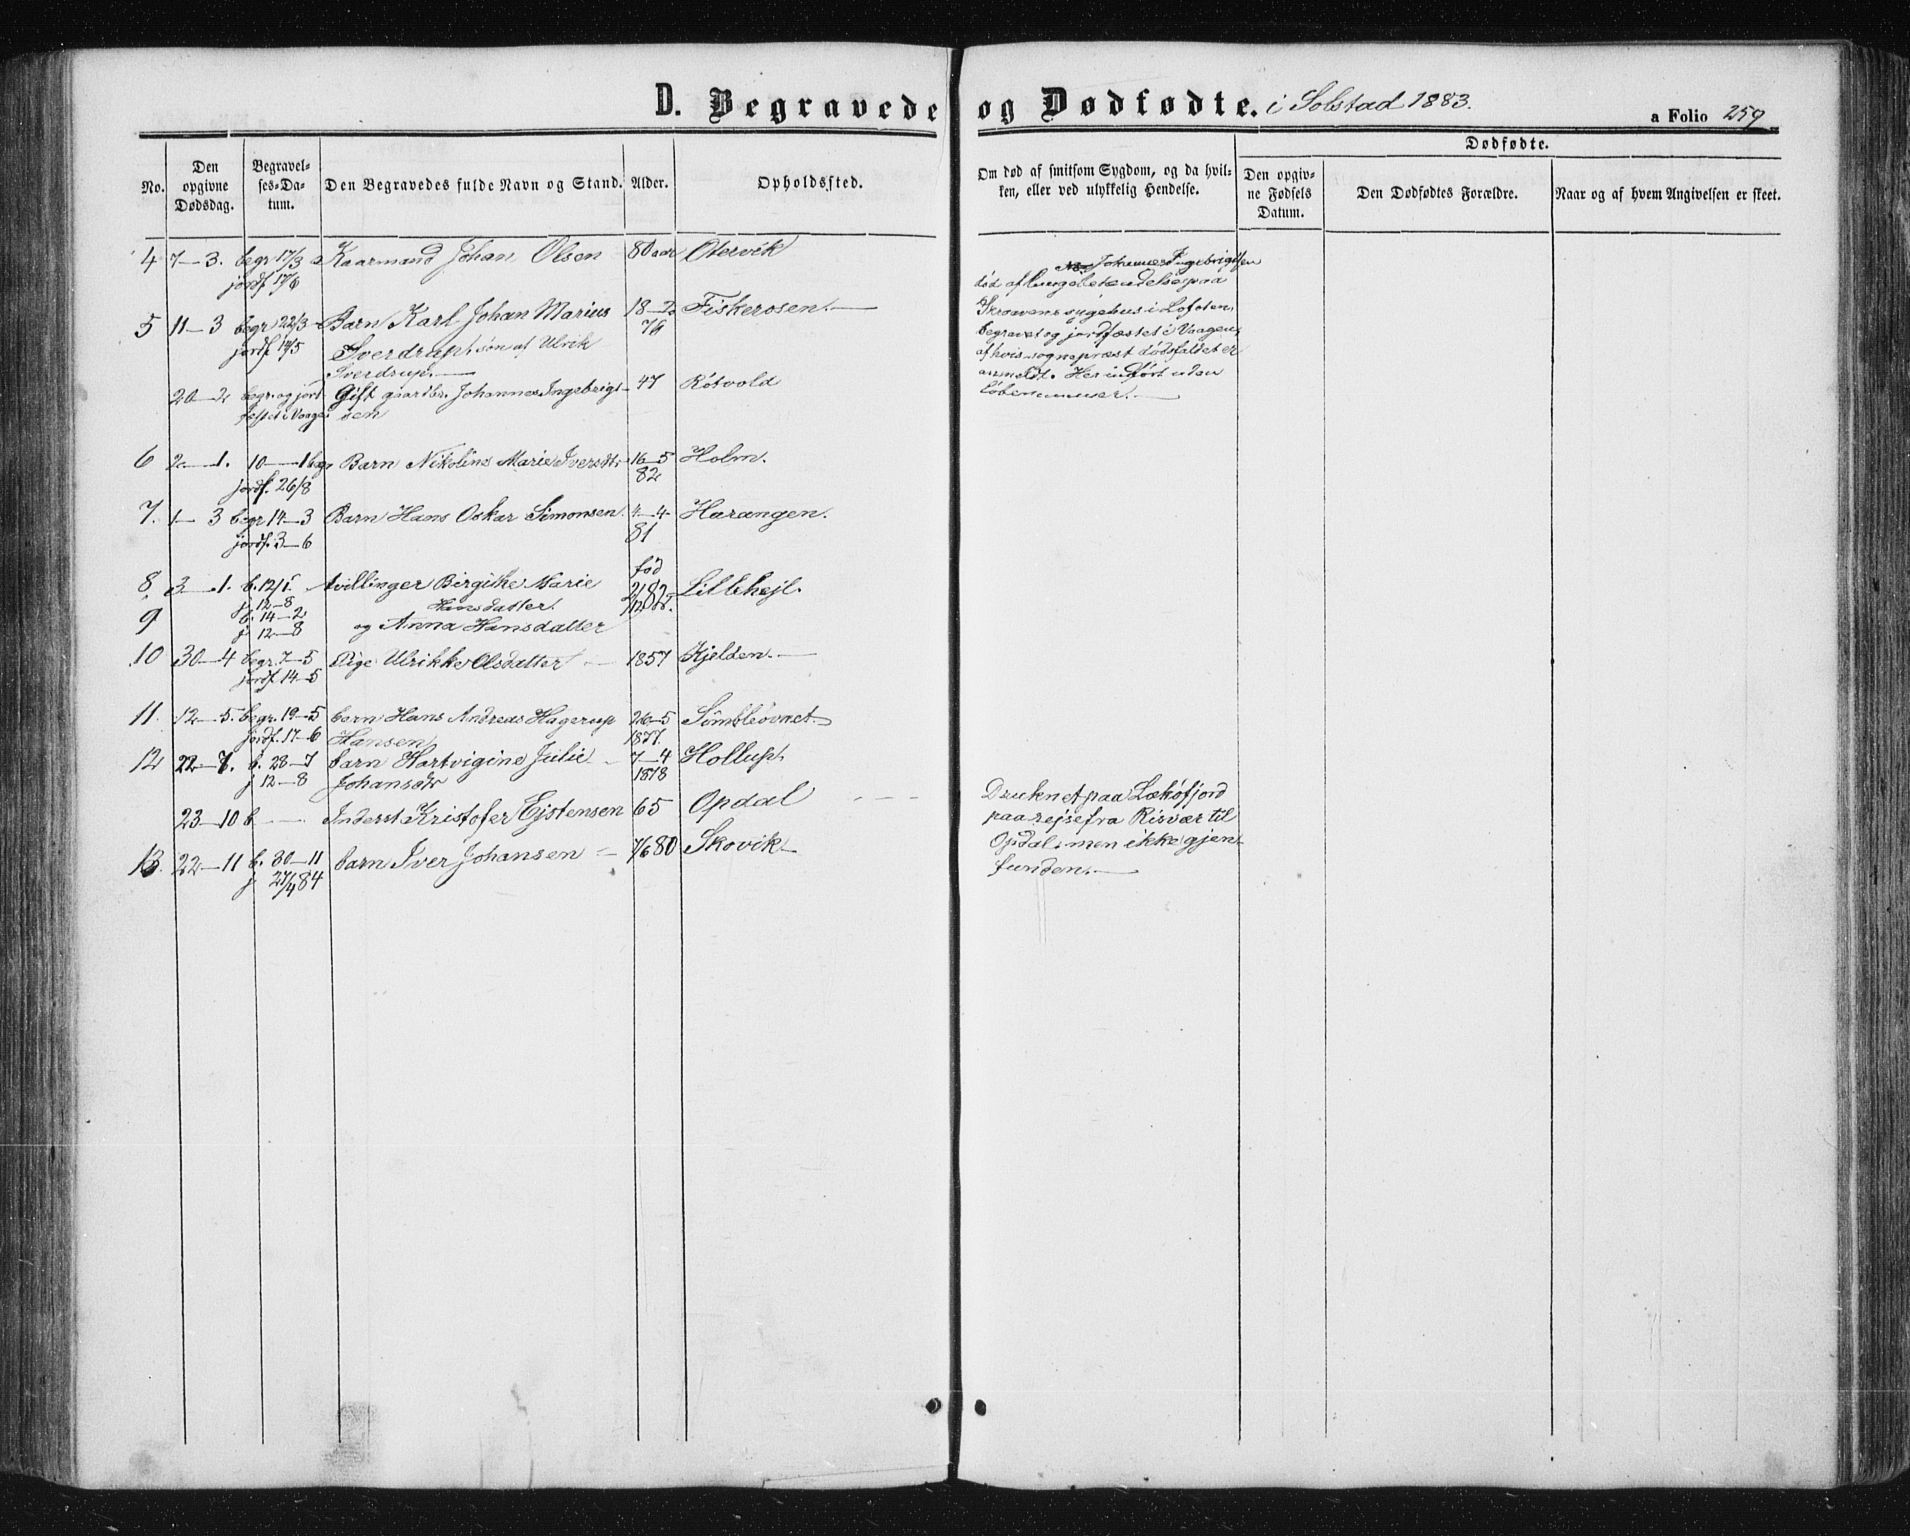 D. Begravede og Dødfødte. i Solstad 1883.
a Folio 259
No.
Den opgivne Dødsdag.
Begravelses-Datum.
Den Begravedes fulde Navn og Stand.
Alder.
Opholdssted.
Om død af smitsom Sygdom, og da hvilken, eller ved ulykkelig Hendelse.
Dødfødte.
Den opgivne Fødsels Datum.
Den Dødfødtes Forældre.
Naar og af hvem Angivelsen er skeet.
4 7-3. begr 17/3 Kaarmand Johan Olsen 80 aar Otervik
jordf 17/6
5 11-3 begr 22/3 Barn Karl Johan Marius 18-2 Fiskerosen.
jordf 14/5 Sverdrup, søn af Ulrik 76
Sverdrup.
20-2 begr. og jord Gift gaardbr. Johannes Ingebrigt- 47 Rötvold
festet i Vaagen sen
Johannes Ingebrigtsen
død af lungebetendelse paa
Skraavens sygehus i Lofoten,
begravet og jordfæstet i Vaagen,
af hvis sognepræst dødsfaldet er
anmeldt. Her indført uden
løbenummer.
6 2-1. 10-1 begr Barn Nikoline Marie Iversdtr 16-5 Holm.
jordf. 26/8 82
7. 1-3 begr 14-3 Barn Hans Oskar Simonsen 4-4 Harangen.
jordf. 3-6 81
8 3-1. b. 12/1 tvillinger Birgithe Marie fød Lillehejl.
j. 12-8 Hansdatter
9 b. 14-2
j. 12-8 og Anna Hansdatter
10 30-4 begr. 7-5 Pige Ulrikke Olsdatter 1857 Kjelden.
jordf. 14-5
11. 12-5. begr. 19-5 barn Hans Andreas Hagerup 26-5
jordf. 17-6 Hansen 1877
12 22-7. b. 28-7 barn Hartvigine Julie 7-4 Hollup.
j 12-8 Johansdtr 1878
23-10 b - Inderst Kristofer Ejstensen 65 Opdal
Druknet paa Lekøfjord
paa rejse fra Risvær til
Opdal, men ikke gjen-
funden.
13. 22-11 b. 30-11 barn Iver Johansen 7/6 80 Skovik
j 27/4 84